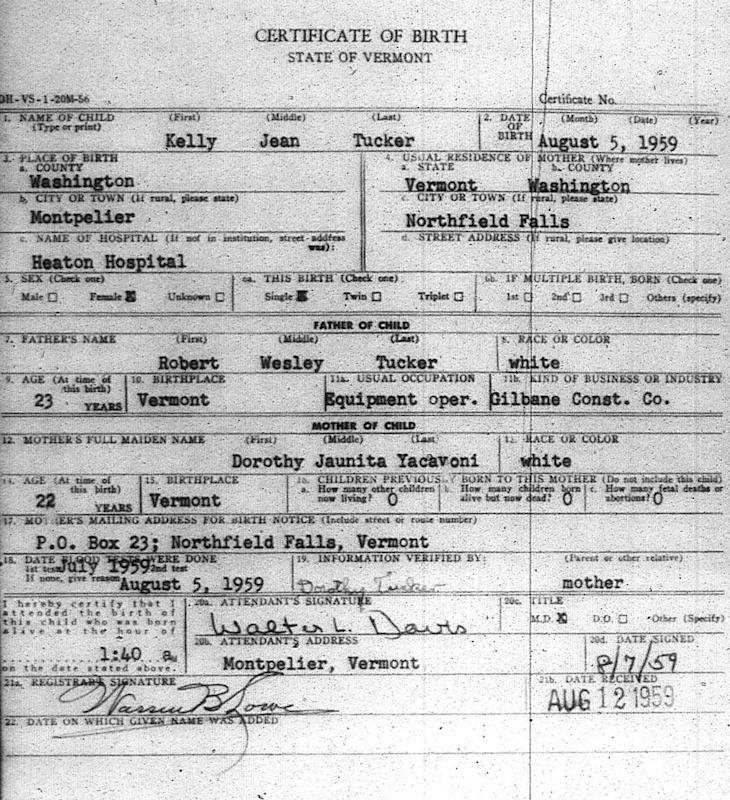 CERTIFICATE OF BIRTH
STATE OF VERMONT
DH-VS-1-20M-56 Certificate No.
1. NAME OF CHILD (First) (Middle) (Last) 2. DATE OF BIRTH (Month) (Date) (Year)
(Type or print)
Kelly Jean Tucker August 5, 1959
3. PLACE OF BIRTH 4. USUAL RESIDENCE OF MOTHER (Where mother lives)
a. COUNTY a. STATE b. COUNTY
Washington Vermont Washington
b. CITY OR TOWN (If rural, please state) c. CITY OR TOWN (If rural, please state)
Montpelier Northfield Falls
c. NAME OF HOSPITAL (If not in institution, street address was): d. STREET ADDRESS (If rural, please give location)
Heaton Hospital
5. SEX (Check one) 6a. THIS BIRTH (Check one) 6b. IF MULTIPLE BIRTH, BORN (Check one)
Male ☐ Female ☒ Unknown ☐ Single ☒ Twin ☐ Triplet ☐ 1st ☐ 2nd ☐ 3rd ☐ Others (specify)
FATHER OF CHILD
7. FATHER'S NAME (First) (Middle) (Last) 8. RACE OR COLOR
Robert Wesley Tucker white
9. AGE (At time of this birth) 10. BIRTHPLACE 11a. USUAL OCCUPATION 11b. KIND OF BUSINESS OR INDUSTRY
23 YEARS Vermont Equipment oper. Gilbane Const. Co.
MOTHER OF CHILD
12. MOTHER'S FULL MAIDEN NAME (First) (Middle) (Last) 13. RACE OR COLOR
Dorothy Jaunita Yacavoni white
14. AGE (At time of this birth) 15. BIRTHPLACE 16. CHILDREN PREVIOUSLY BORN TO THIS MOTHER (Do not include this child)
a. How many other children now living? 0 b. How many children born alive but now dead? 0 c. How many fetal deaths or abortions? 0
22 YEARS Vermont
17. MOTHER'S MAILING ADDRESS FOR BIRTH NOTICE (Include street or route number)
P.O. Box 23; Northfield Falls, Vermont
18. DATE BLOOD TESTS WERE DONE 19. INFORMATION VERIFIED BY: (Parent or other relative)
1st test July 1959 2nd test
If none, give reason August 5, 1959 Dorothy Tucker mother
I hereby certify that I attended the birth of this child who was born alive at the hour of
1:40 a.
on the date stated above.
20a. ATTENDANT'S SIGNATURE 20c. TITLE
Walter L. Davis M.D. ☒ D.O. ☐ Other (Specify)
20b. ATTENDANT'S ADDRESS 20d. DATE SIGNED
Montpelier, Vermont 8/7/59
21a. REGISTRAR'S SIGNATURE 21b. DATE RECEIVED
Warren B Lowe AUG 12 1959
22. DATE ON WHICH GIVEN NAME WAS ADDED